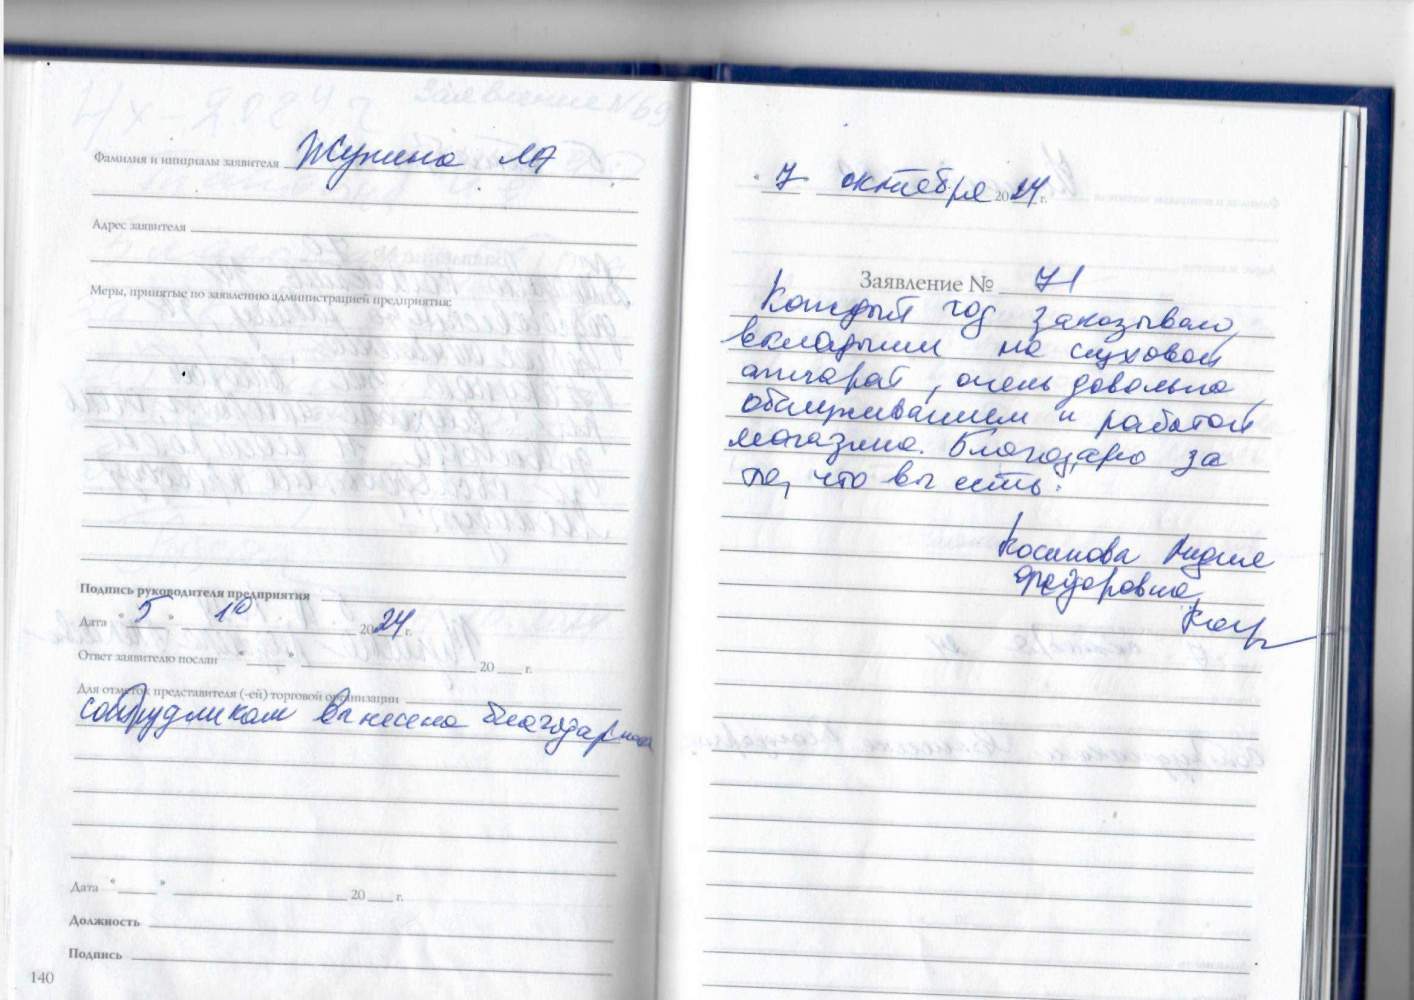 Фамилия и инициалы заявителя Жунина ЛА
Адрес заявителя
Меры, принятые по заявлению администрацией предприятия:
Подпись руководителя предприятия
Дата " 5 " 10 2024 г.
Ответ заявителю послан " " 20 г.
Для отметок представителя (-ей) торговой организации
сотрудникам вынесена благодарность
Дата " " 20 г.
Должность
Подпись
140
7 октября 2024 г.
Заявление № 71
Каждый год заказываю
вкладыши на слуховой
аппарат, очень довольна
обслуживанием и работой
магазина. Благодарю за
то, что вы есть.
Косинова Лидия
Федоровна